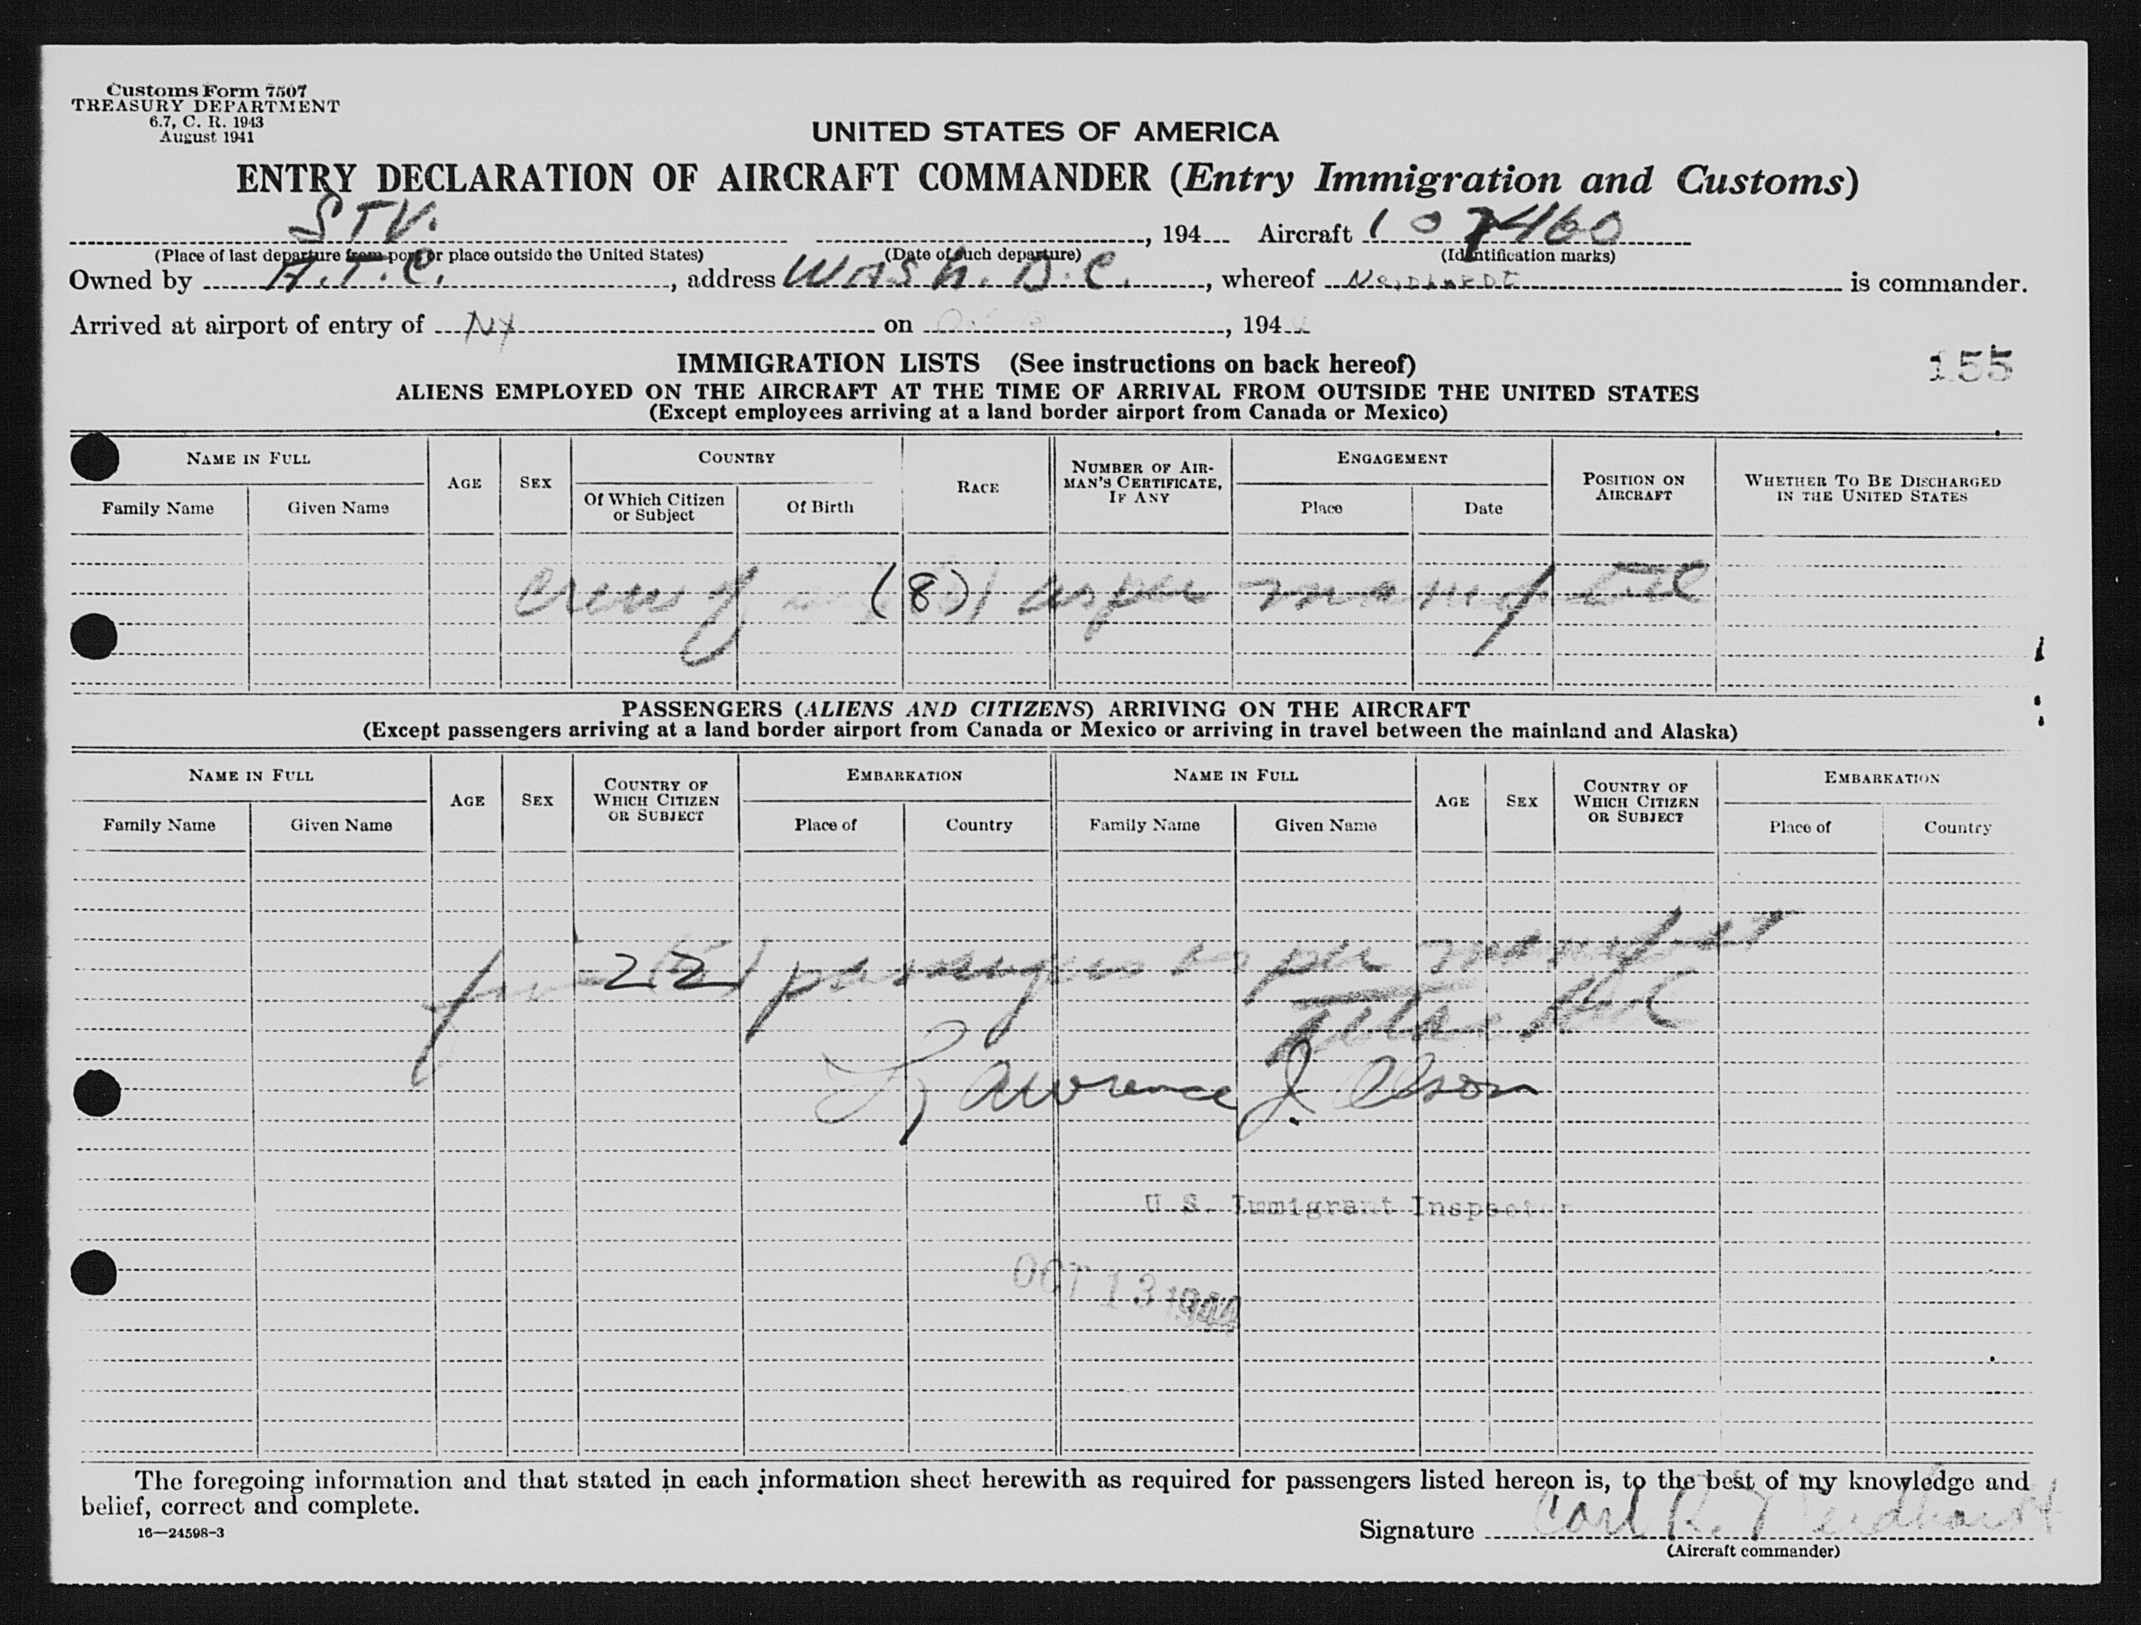 Customs Form 7507
TREASURY DEPARTMENT
6.7, C. R. 1943
August 1941
UNITED STATES OF AMERICA
ENTRY DECLARATION OF AIRCRAFT COMMANDER (Entry Immigration and Customs)
STV. , 194 Aircraft 107460
(Place of last departure from port or place outside the United States) (Date of such departure) (Identification marks)
Owned by A.T.C. , address Wash. D.C. , whereof Neidhardt is commander.
Arrived at airport of entry of NY on , 194
IMMIGRATION LISTS (See instructions on back hereof)
155
ALIENS EMPLOYED ON THE AIRCRAFT AT THE TIME OF ARRIVAL FROM OUTSIDE THE UNITED STATES
(Except employees arriving at a land border airport from Canada or Mexico)
NAME IN FULL AGE SEX COUNTRY RACE NUMBER OF AIR-MAN'S CERTIFICATE, IF ANY ENGAGEMENT POSITION ON AIRCRAFT WHETHER TO BE DISCHARGED IN THE UNITED STATES
Family Name Given Name Of Which Citizen or Subject Of Birth Place Date
crew of (8) as per manif
PASSENGERS (ALIENS AND CITIZENS) ARRIVING ON THE AIRCRAFT
(Except passengers arriving at a land border airport from Canada or Mexico or arriving in travel between the mainland and Alaska)
NAME IN FULL AGE SEX COUNTRY OF WHICH CITIZEN OR SUBJECT EMBARKATION NAME IN FULL AGE SEX COUNTRY OF WHICH CITIZEN OR SUBJECT EMBARKATION
Family Name Given Name Place of Country Family Name Given Name Place of Country
22 passengers as per manifest
attached
Lawrence J. Olson
U.S. Immigrant Inspector
OCT 13 1944
The foregoing information and that stated in each information sheet herewith as required for passengers listed hereon is, to the best of my knowledge and
belief, correct and complete.
16—24598-3
Signature Carl R. Neidhardt
(Aircraft commander)